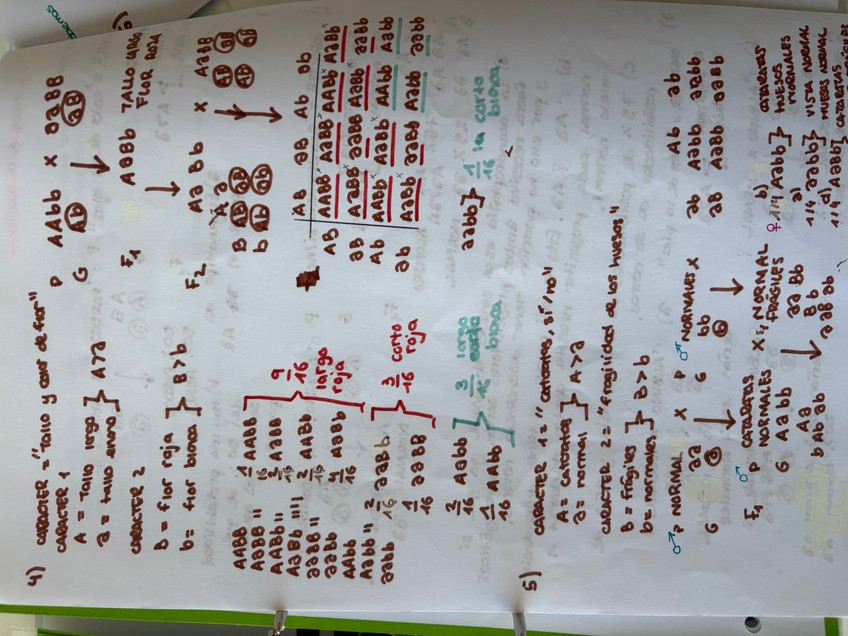 4) CARÁCTER = "Tallo y color de flor"
CARÁCTER 1
A = Tallo largo
a = tallo enano } A > a
CARÁCTER 2
B = flor roja
b = flor blanca } B > b
P AAbb x aaBB
G Ab aB
F1 AaBb TALLO LARGO
FLOR ROJA
F2 AaBb x AaBB
A a
B AB aB
b Ab ab
AB aB Ab ab
AB AABB AaBB AABb AaBb
aB AaBB aaBB AaBb aaBb
Ab AABb AaBb AAbb Aabb
ab AaBb aaBb Aabb aabb
aabb } 1/16 la corto
blanca.
AABB
AaBB II
AABb II
AaBb IIII
aaBB II
aaBb
AAbb
Aabb II
aabb
1/16 AABB
2/16 AaBB
2/16 AABb
4/16 AaBb
9/16
largo
roja
2/16 aaBb
1/16 aaBB
3/16 corto
roja
2/16 Aabb
1/16 AAbb
3/16 largo
blanca
5) CARÁCTER 1 = "cataratas, sí/no"
A = Cataratas
a = normal } A > a
CARÁCTER 2 = "fragilidad de los huesos"
B = frágiles
b = normales } B > b
P NORMAL x P NORMALES x
G aa G bb
a b
F1 P CATARATAS x NORMAL
NORMALES FRÁGILES
G Aa bb aa Bb
A a B b
b Ab ab aB ab
Ab ab
ab Aabb aabb
aB AaBb aaBb
♀ 1/4 Aabb } b) CATARATAS
HUESOS
NORMALES
1/4 aabb } a) VISTA NORMAL
HUESOS NORMAL
1/4 AaBb } d) CATARATAS